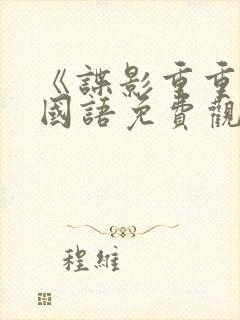 《諜影重重
國語免費觀
程維